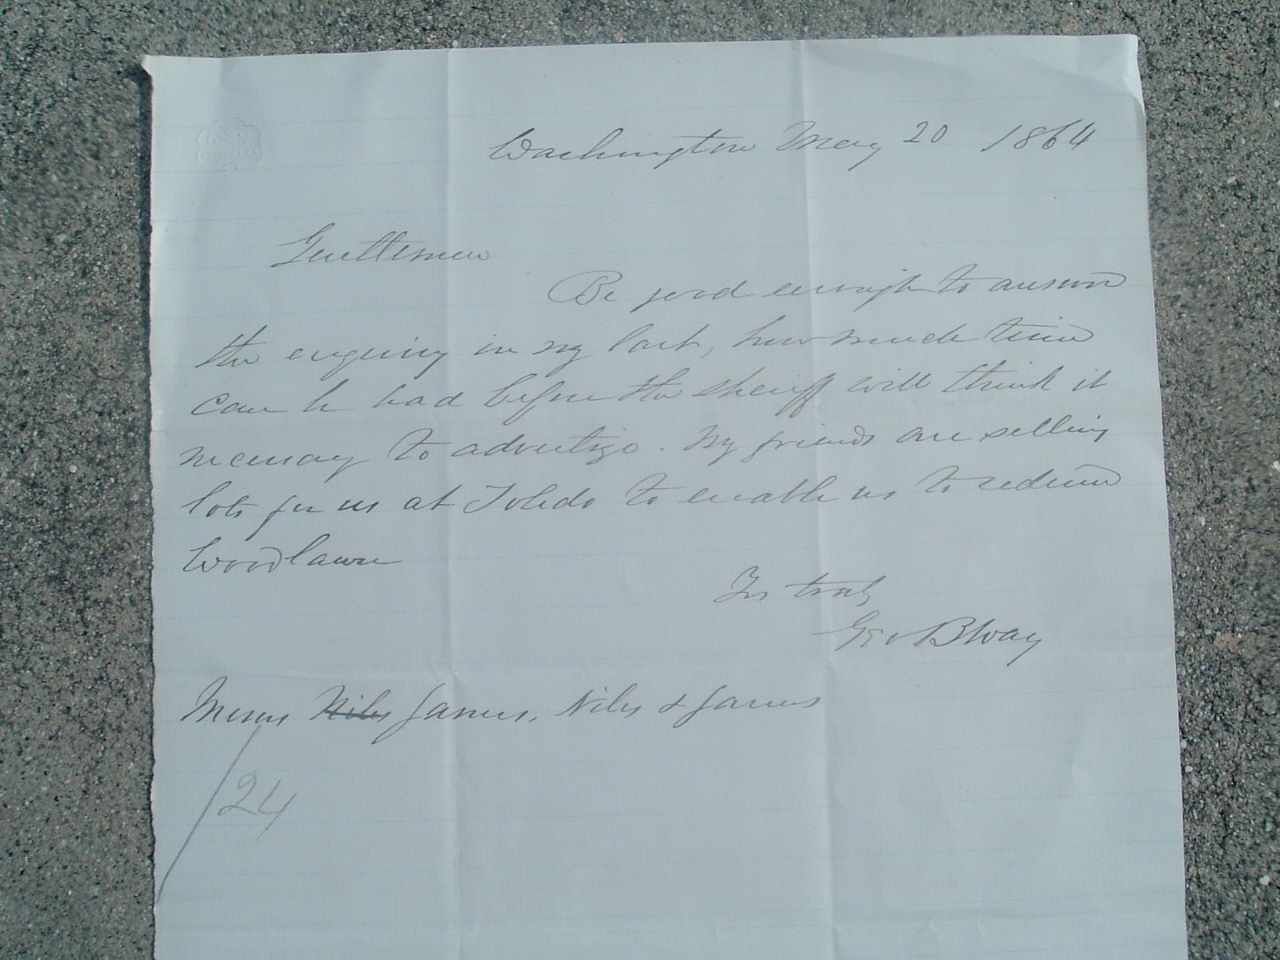 Washington May 20 1864
Gentlemen
Be good enough to answer
the enquiry in my last, how much time
can be had before the sheriff will think it
necessary to advertize. My friends are selling
lots for us at Toledo to enable us to redeem
Woodlawn
Yrs truly
Geo B Way
Messrs Niles James, Niles & James
/24